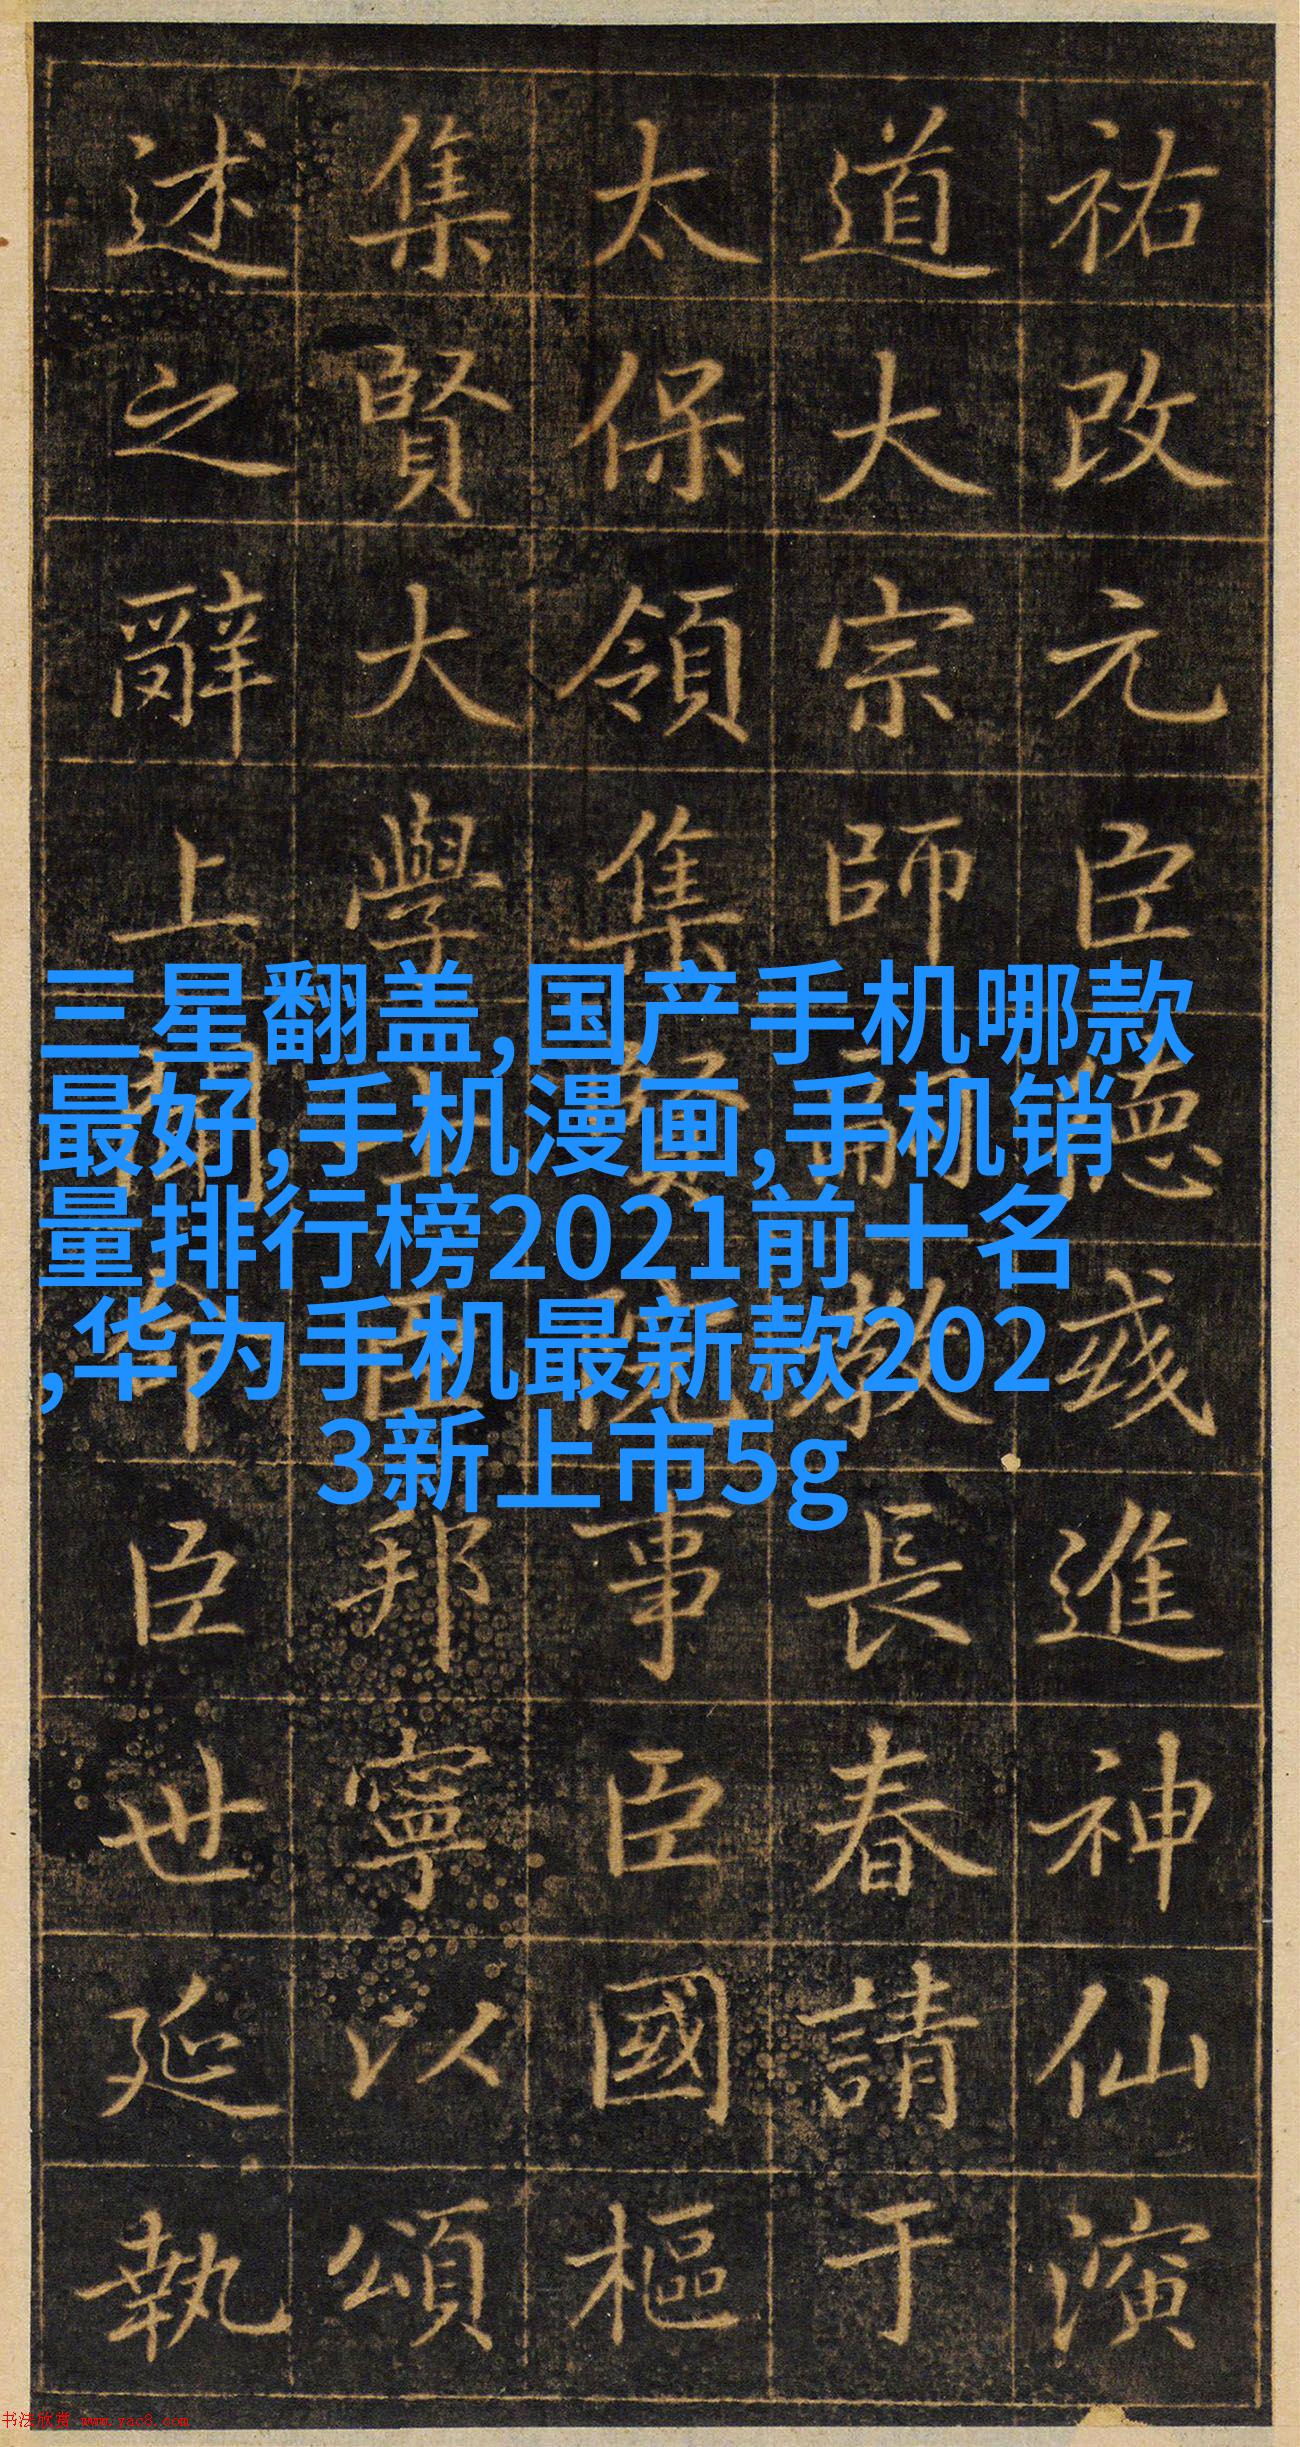 祐改元臣德彧進神仙演
道大宗師嗣教長春請于
太保領集賢院事臣國樞
集賢大學士臣邦寧以頌
述之辭上聞命臣世延執
三星翻盖,国产手机哪款
最好,手机漫画,手机销
量排行榜2021前十名
,华为手机最新款202
3新上市5g
书法欣赏 www.yac8.com